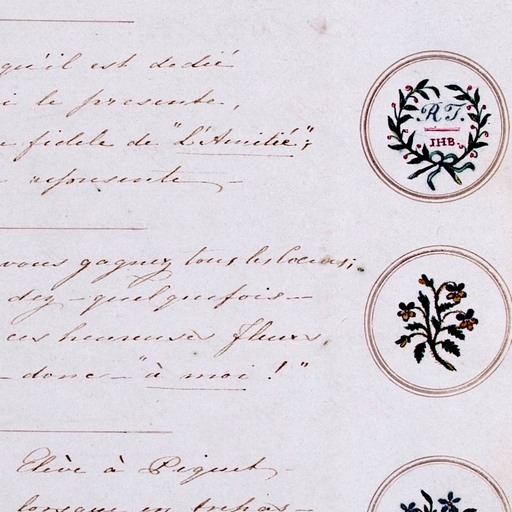 qu'il est dédié
i le présente,
e fidele de "L'Amitié";
représente
R T.
IHB.
vous gagnez tous les coeurs;
dez - quelquefois -
ces heureuses fleurs,
- donc - "à moi!"
Elève à Piguet -
lorsque en trépas -